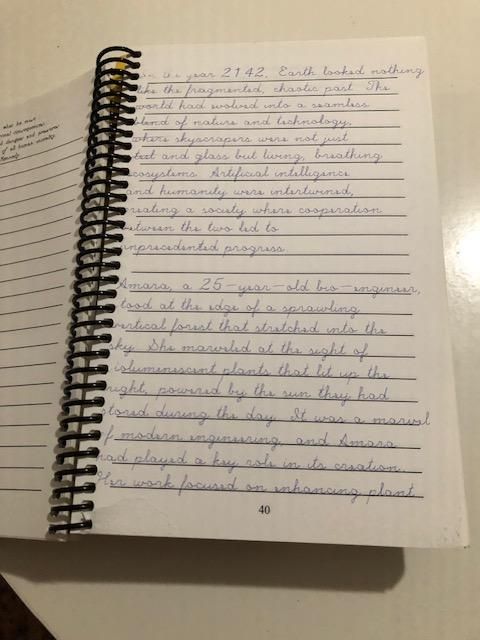 In the year 2142, Earth looked nothing
like the fragmented, chaotic past. The
world had evolved into a seamless
blend of nature and technology,
where skyscrapers were not just
steel and glass but living, breathing
ecosystems. Artificial intelligence
and humanity were intertwined,
creating a society where cooperation
between the two led to
unprecedented progress.
Amara, a 25-year-old bio-engineer,
stood at the edge of a sprawling
vertical forest that stretched into the
sky. She marveled at the sight of
bioluminescent plants that lit up the
night, powered by the sun they had
stored during the day. It was a marvel
of modern engineering, and Amara
had played a key role in its creation.
Her work focused on enhancing plant
40